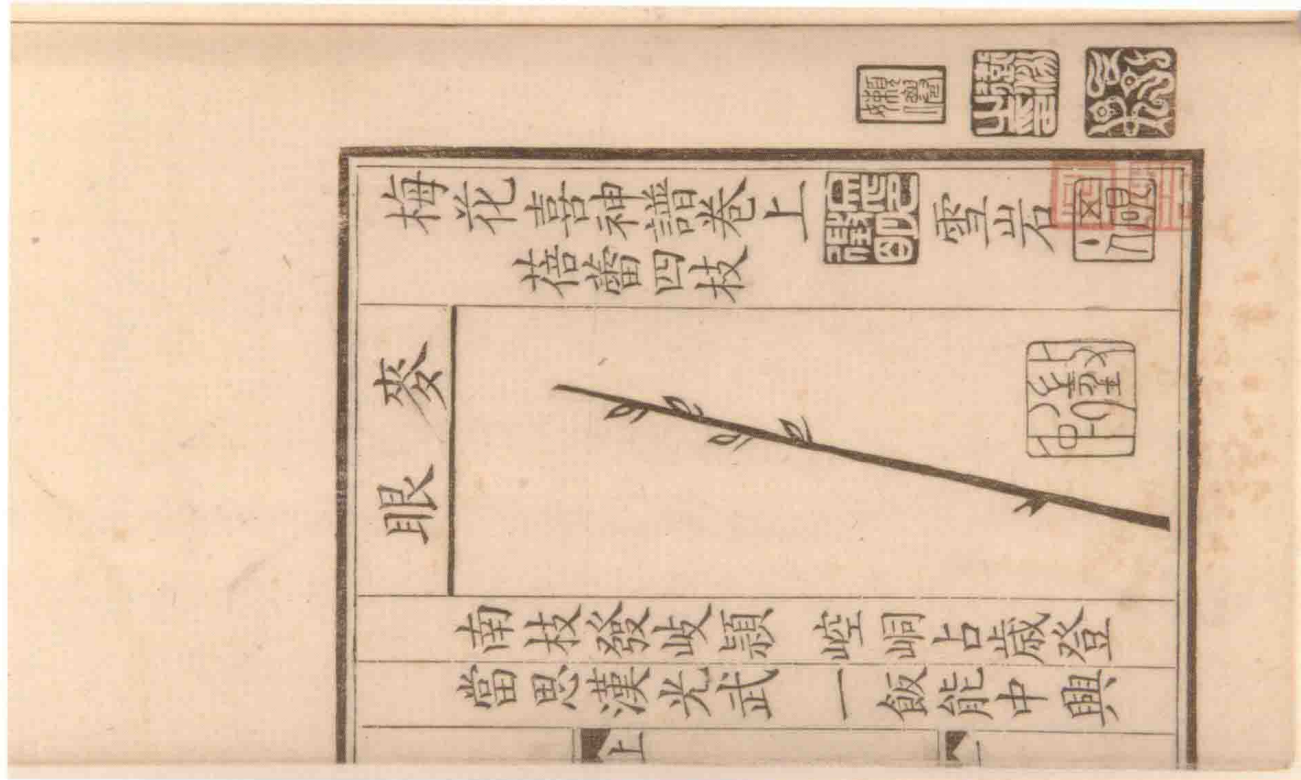 梅花喜神譜卷上 雪岩
蓓蕾四枝
麥眼
南枝發歧頴 崆峒占歳登
當思漢光武 一飯能中興
上 一